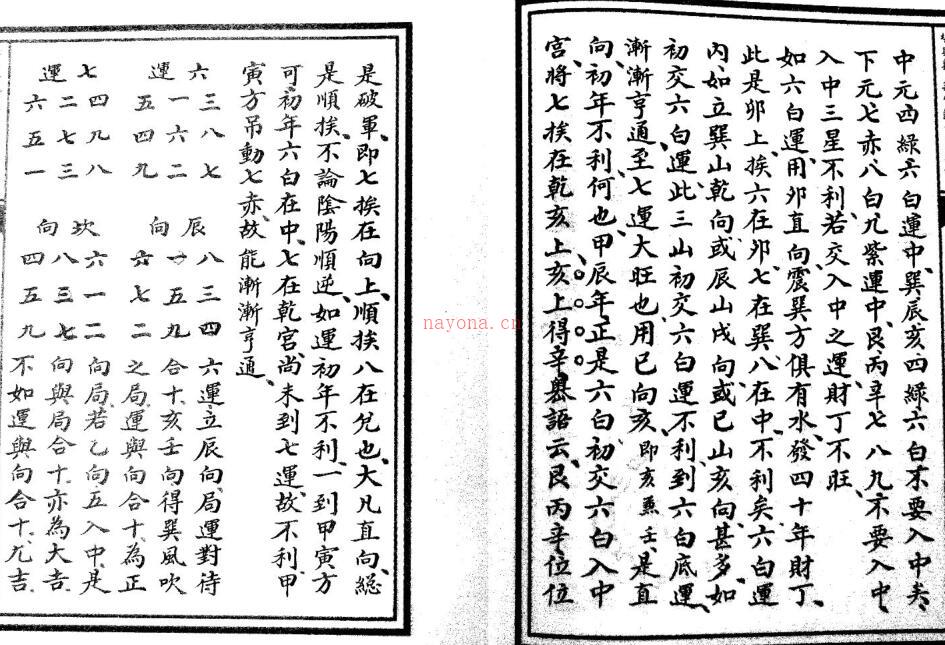 中元四綠六白運中巽辰亥四綠六白不要入中矣
下元七赤八白九紫運中艮丙辛七八九不要入中
入中三星不利若交入中之運財丁不旺
如六白運用卯直向震巽方俱有水發四十年財丁
此是卯上挨六在卯七在巽八在中不利矣六白運
內如立巽山乾向或辰山戌向或巳山亥向甚多如
初交六白運此三山初交六白運不利到六白底運
漸漸亨通至七運大旺也用巳向亥即亥兼壬是直
向初年不利何也甲辰年正是六白初交六白入中
宮將七挨在乾亥上亥上得辛畧語云艮丙辛位位
是破軍即七挨在向上順挨八在兌也大凡直向總
是順挨不論陰陽順逆如運初年不利一到甲寅方
可初年六白在中七在乾宮尚未到七運故不利甲
寅方吊動七赤故能漸漸亨通
六運 辰向
三八七 八三四
一六二 一五九
五四九 六七二
六運立辰向局運對待
合十亥壬向得巽風吹
之局運與向合十為正
七運 坎向
四九八 六一二
二七三 八三七
六五一 四五九
向局若乙向五入中是
向與局合十亦為大吉
不如運與向合十尤吉
nayona.cn